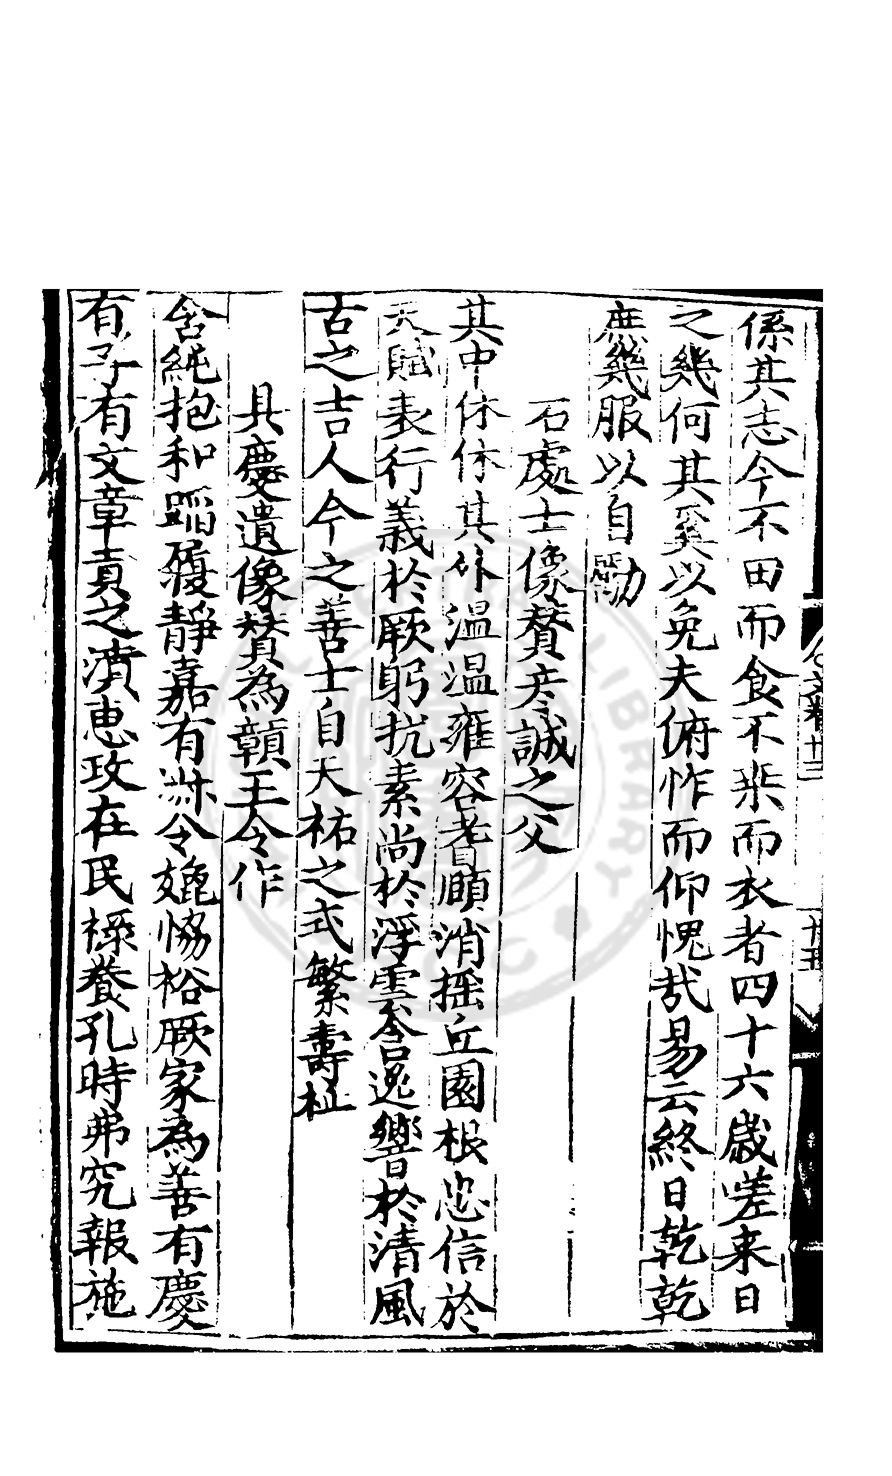 係其志今不田而食不桒而衣者四十六歲嗟来日
之幾何其奚以免夫俯怍而仰愧哉易云終日乾乾
庶幾服以自勵
石處士像賛彦誠之父
其中休休其外温温雍容耆頤消摇丘園根忠信於
天賦表行義於厥躬抗素尚於浮雲含逸響於清風
古之吉人今之善士自天祐之式繁壽祉
具慶遺像賛為顛王令作
含純抱和蹈履静嘉有淋令媲恊裕厥家為善有慶
有子有文章責之濆惠攻在民禄養孔時弗究報施
文卷廿三
廿五
CENTRAL LIBRARY